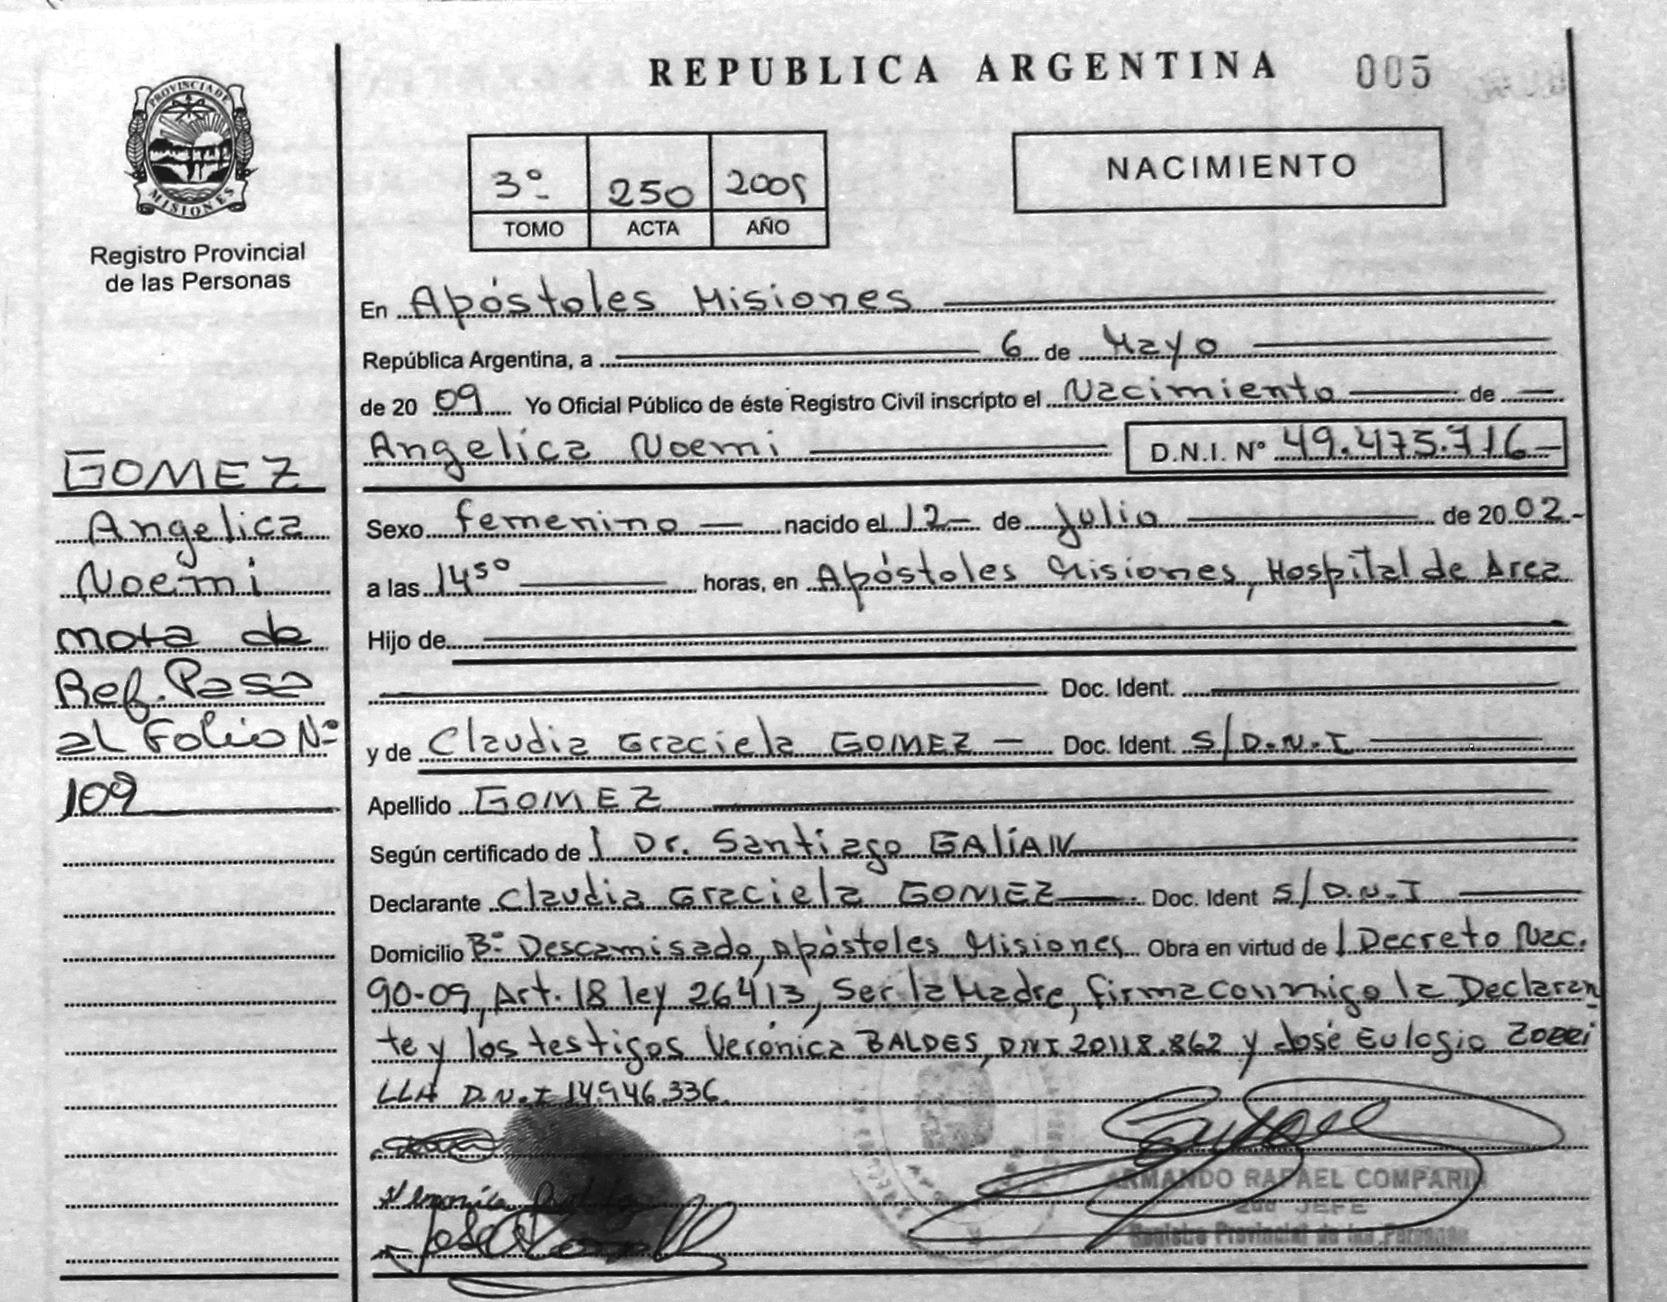 REPUBLICA ARGENTINA 005
PROVINCIA DE
MISIONES
Registro Provincial
de las Personas
3º 250 2009
TOMO ACTA AÑO
NACIMIENTO
GOMEZ
Angelica
Noemi
nota de
Ref. Pasa
al Folio Nº
109
En Apóstoles Misiones
República Argentina, a 6 de Mayo
de 20 09 Yo Oficial Público de éste Registro Civil inscripto el Nacimiento de
Angelica Noemi D.N.I. Nº 49.475.716
Sexo femenino nacido el 12 de Julio de 20 02
a las 14 50 horas, en Apóstoles Misiones, Hospital de Area
Hijo de
Doc. Ident.
y de Claudia Graciela GOMEZ Doc. Ident. S/D.N.I
Apellido GOMEZ
Según certificado de l Dr. Santiago GALIAN
Declarante Claudia Graciela GOMEZ Doc. Ident S/D.N.I
Domicilio Bº Descamisado, Apóstoles Misiones Obra en virtud de l Decreto Nac.
90-09, Art. 18 ley 26413, Ser la Madre, firma conmigo la Declaran
te y los testigos Verónica BALDES, DNI 20118.862 y José Eulogio
LLA D.N.I 14.946.336.
ARMANDO RAFAEL COMPARIN
2do JEFE
Registro Provincial de las Personas